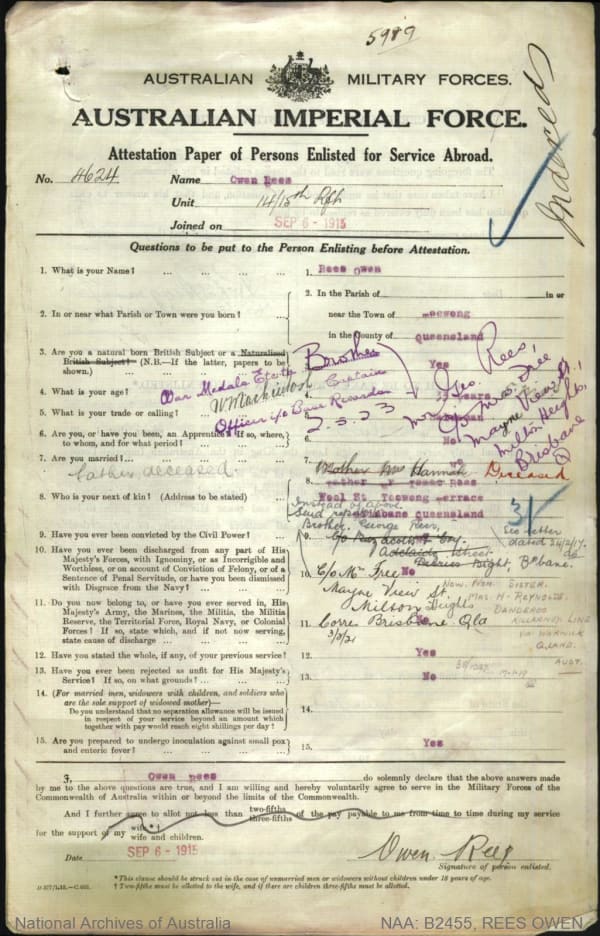 5989
AUSTRALIAN MILITARY FORCES.
AUSTRALIAN IMPERIAL FORCE.
Indexed
Attestation Paper of Persons Enlisted for Service Abroad.
No. 4624 Name Owen Rees
Unit 14/15th Rfts
Joined on SEP 6 - 1915
Questions to be put to the Person Enlisting before Attestation.
1. What is your Name? ... ... ... 1. Rees Owen
2. In or near what Parish or Town were you born? 2. In the Parish of in or
near the Town of
in the County of Queensland
3. Are you a natural born British Subject or a Naturalised British Subject? (N.B.—If the latter, papers to be shown.) 3. Yes
4. What is your age? 4. years
5. What is your trade or calling? 5.
6. Are you, or have you been, an Apprentice? If so, where, to whom, and for what period? 6. No
7. Are you married? 7. No
8. Who is your next of kin? (Address to be stated) 8. father
War Medals Etc to Brother
Captain
Officer i/c Base Records
2.5.23
Geo. Rees,
C/o Mrs. Free
Mayne View St.,
Milton Heights,
Brisbane
father deceased.
Mother Mrs Hannah Deceased
Toowong Terrace
Brisbane Queensland
Instead of above
Brother. George Rees,
Adelaide Street
Brisbane.
See letter
dated 24/2/17.
C/o Mrs Free
Mayne View St.
Milton Heights
Brisbane Qld
3/3/21
NOW. NOK. SISTER.
MRS H. REYNOLDS.
KILLARNEY LINE
VIA WARWICK
Q'LAND.
AUST.
9. Have you ever been convicted by the Civil Power? 9.
10. Have you ever been discharged from any part of His Majesty's Forces, with Ignominy, or as Incorrigible and Worthless, or on account of Conviction of Felony, or of a Sentence of Penal Servitude, or have you been dismissed with Disgrace from the Navy? 10. No
11. Do you now belong to, or have you ever served in, His Majesty's Army, the Marines, the Militia, the Militia Reserve, the Territorial Force, Royal Navy, or Colonial Forces? If so, state which, and if not now serving, state cause of discharge 11.
12. Have you stated the whole, if any, of your previous service? 12. Yes
13. Have you ever been rejected as unfit for His Majesty's Service? If so, on what grounds? 13. No
14. (For married men, widowers with children, and soldiers who are the sole support of widowed mother)—
Do you understand that no separation allowance will be issued in respect of your service beyond an amount which together with pay would reach eight shillings per day? 14.
15. Are you prepared to undergo inoculation against small pox and enteric fever? 15. Yes
I, Owen Rees do solemnly declare that the above answers made
by me to the above questions are true, and I am willing and hereby voluntarily agree to serve in the Military Forces of the
Commonwealth of Australia within or beyond the limits of the Commonwealth.
And I further agree to allot not less than two-fifths three-fifths of the pay payable to me from time to time during my service
for the support of my wife † wife and children.
Date SEP 6 - 1915 Owen Rees
Signature of person enlisted.
* This clause should be struck out in the case of unmarried men or widowers without children under 18 years of age.
† Two-fifths must be allotted to the wife, and if there are children three-fifths must be allotted.
National Archives of Australia NAA: B2455, REES OWEN